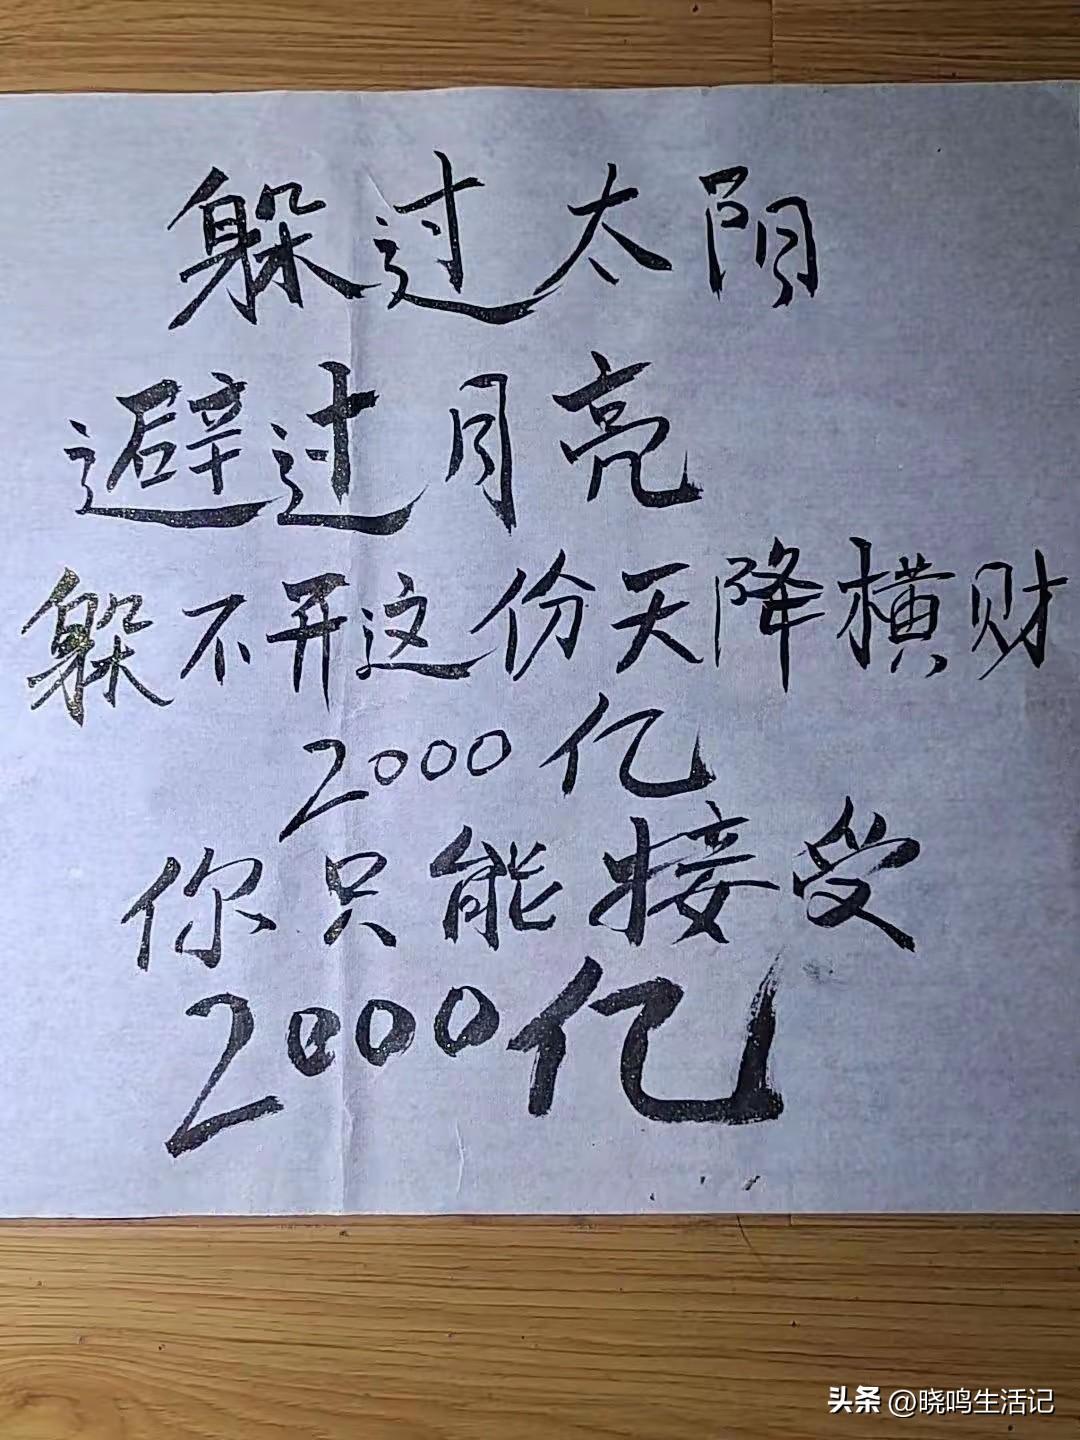 躲过太阴
避过月亮
躲不开这份天降横财
2000亿
你只能接受
2000亿
头条 @晓鸣生活记